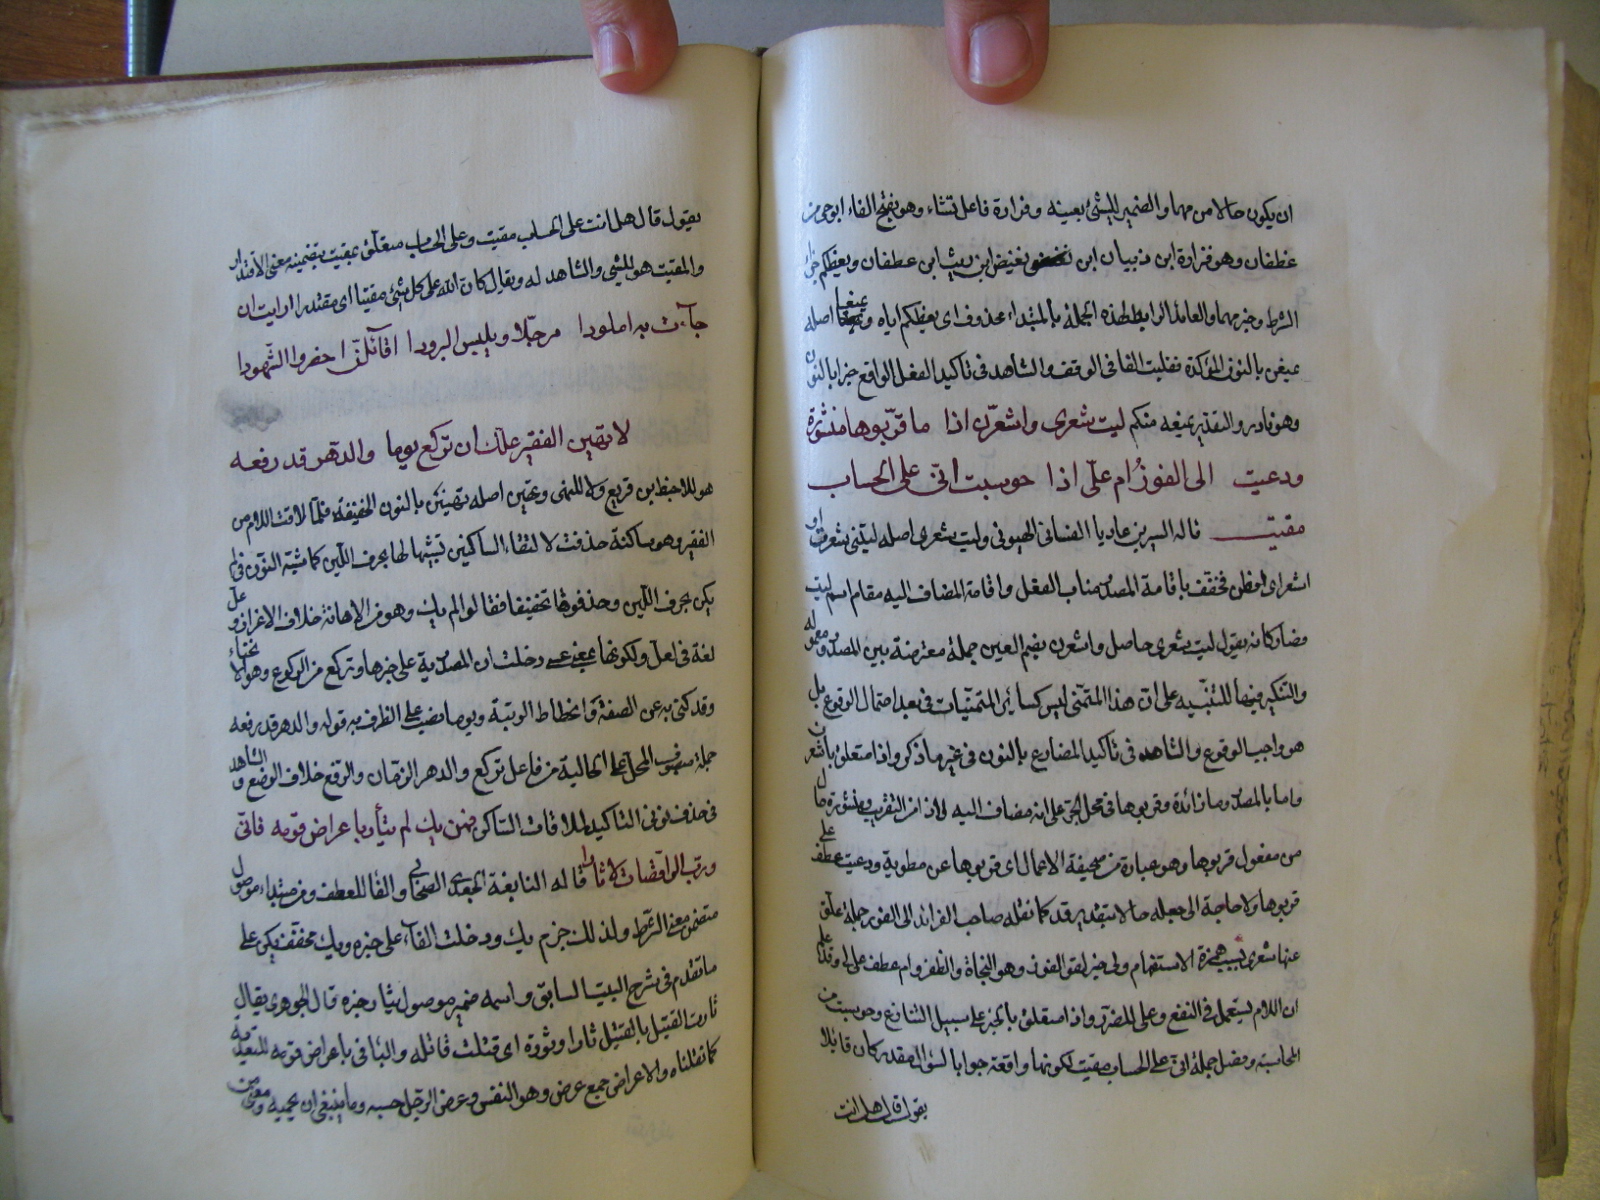 ان يكون حالا من مهما والضمير للشئ بعينه وفزارة فاعل تشاء وهو بفتح الفاء ابو حى من
غطفان وهو فزارة ابن ذبيان ابن بغيض ابن ريث ابن عطفان ويعظكم جزاء
الشرط وخبر مهما والعامل الرابط لهذه الجملة بالمبتداء محذوف اى يعظكم اياه ويمنعا اصله
يمنعن بالنون المؤكدة فقلبت الفا فى الوقف والشاهد فى تاكيد الفعل الواقع جزا بالنون
وهو نادر والتقدير يمنعه منكم ليت شعرى واشعرن اذا ما قربوها منشورة
ودعيت الى الفوز ام على اذا حوسبت انى على الحساب
مقيت قاله السير بن عاديا الغسانى وليت شعرى اصله ليتنى شعرت او
اشعر اى فحفف باقامة المصدر مناب الفعل واقامة المضاف اليه مقام اسم ليت
فكانه يقول ليت شعرى حاصل واشعرن بضم العين جملة معترضة بين المصدر ومعموله
والتنكير فيها للتنبيه على ان هذا المتمنى ليس كسائر المتمنيات فى بعد احتمال الوقوع بل
هو واجب الوقوع والشاهد فى تاكيد المضارع بالنون فى غير ما ذكر واذا متعلق باشعرن
واما بالمصدر وما زائدة وقربوها فى محل الجر على انه مضاف اليه واذ من التقريب ومنشورة حال
من مفعول قربوها وهو عبارة من صحيفة الاعمال اى قربوها عن مطوية ودعيت عطف على
قربوها ولا حاجة الى جعله حالا بتقدير قد كما نقله صاحب الفرائد الى الفوز جملة علق
عنها شعرى بسبب همزة الاستفهام ولى خبر لقوله الفوز وهو النجاة والظفر وام عطف على لى وقد علم
ان اللام يستعمل فى النفع وعلى للمضرة واذا متعلق بالخبر على سبيل التنازع وحوسبت من
المحاسبة وفصل جملة انى على الحساب مقيت لكونها واقعة جوابا لسؤال مقدر كان قايلا
يقول قال هل انت
يقول قال هل انت على الحساب مقيت وعلى الحساب متعلق بمقيت بتضمينه معنى الاقتدار
والمقيت هو للشئ والشاهد له ويقال كان الله على كل شئ مقيتا اى مقتدرا ارايت ان
جآءت به املودا مرجلا ويلبس البرودا اقآئلن احضروا الشهودا
لا تهين الفقير علك ان تركع يوما والدهر قد رفعه
هو للاضبط بن قريع ولا للنهى وتهين اصله تهينن بالنون الخفيفة فلما لاقت اللام من
الفقير وهو ساكنة حذفت لالتقاء الساكنين تشبيها لها بحرف اللين كما شبه النون فى لم
يكن بحرف اللين وحذفوها تخفيفا فقالوا لم يك وهو من الاهانة خلاف الاعزاز وعل
لغة فى لعل ولكونها بمعنى عسى دخلت ان المصدرية على خبرها وتركع من الركوع وهو الانحناء
وقد كنى به عن الضعة وانحطاط الرتبة ويوما نصب على الظرف به قوله والدهر قد رفعه
جملة منصوب المحل على الحالية من فاعل تركع والدهر الزمان والرفع خلاف الوضع والشاهد
فى حذف نونى التاكيد لملاقات الساكن فمن يك لم يثأر باعراض قومه فانى
ورب الراقصات لاثارا قاله النابغة الجعدى الصحابى والفا للعطف ومن مبتداء موصول
متضمن معنى الشرط ولذلك جزم يك ودخلت الفآء على خبره ويك مخفف يكن على
ما تقدم فى شرح البيت السابق واسمه ضمير موصول يثار خبره قال الجوهرى يقال
ثارت القتيل بالقتيل ثارا وثؤرة اى قتلت قاتله والبا فى باعراض قومه للتعدية
كما نقلناه والاعراض جمع عرض وهو النفس وعرض الرجل حسبه وما ينبغى ان يحميه